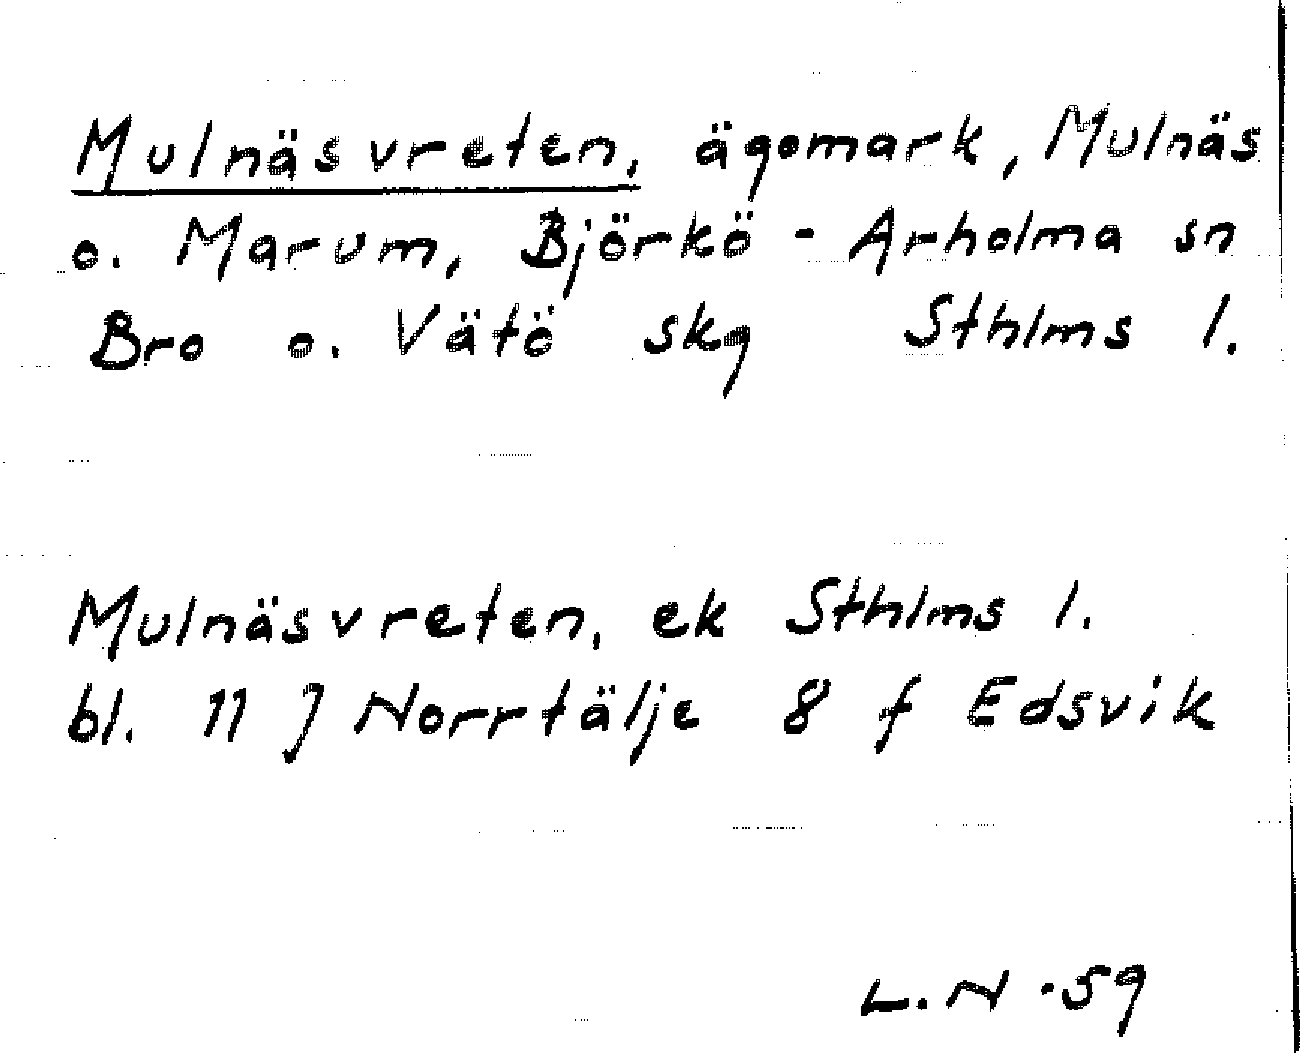 Mulnäsvreten, ägomark, Mulnäs
o. Marum, Björkö - Arholma sn
Bro o. Vätö skg Sthlms l.
Mulnäsvreten, ek Sthlms l.
bl. 11 J Norrtälje 8 f Edsvik
L. N -59